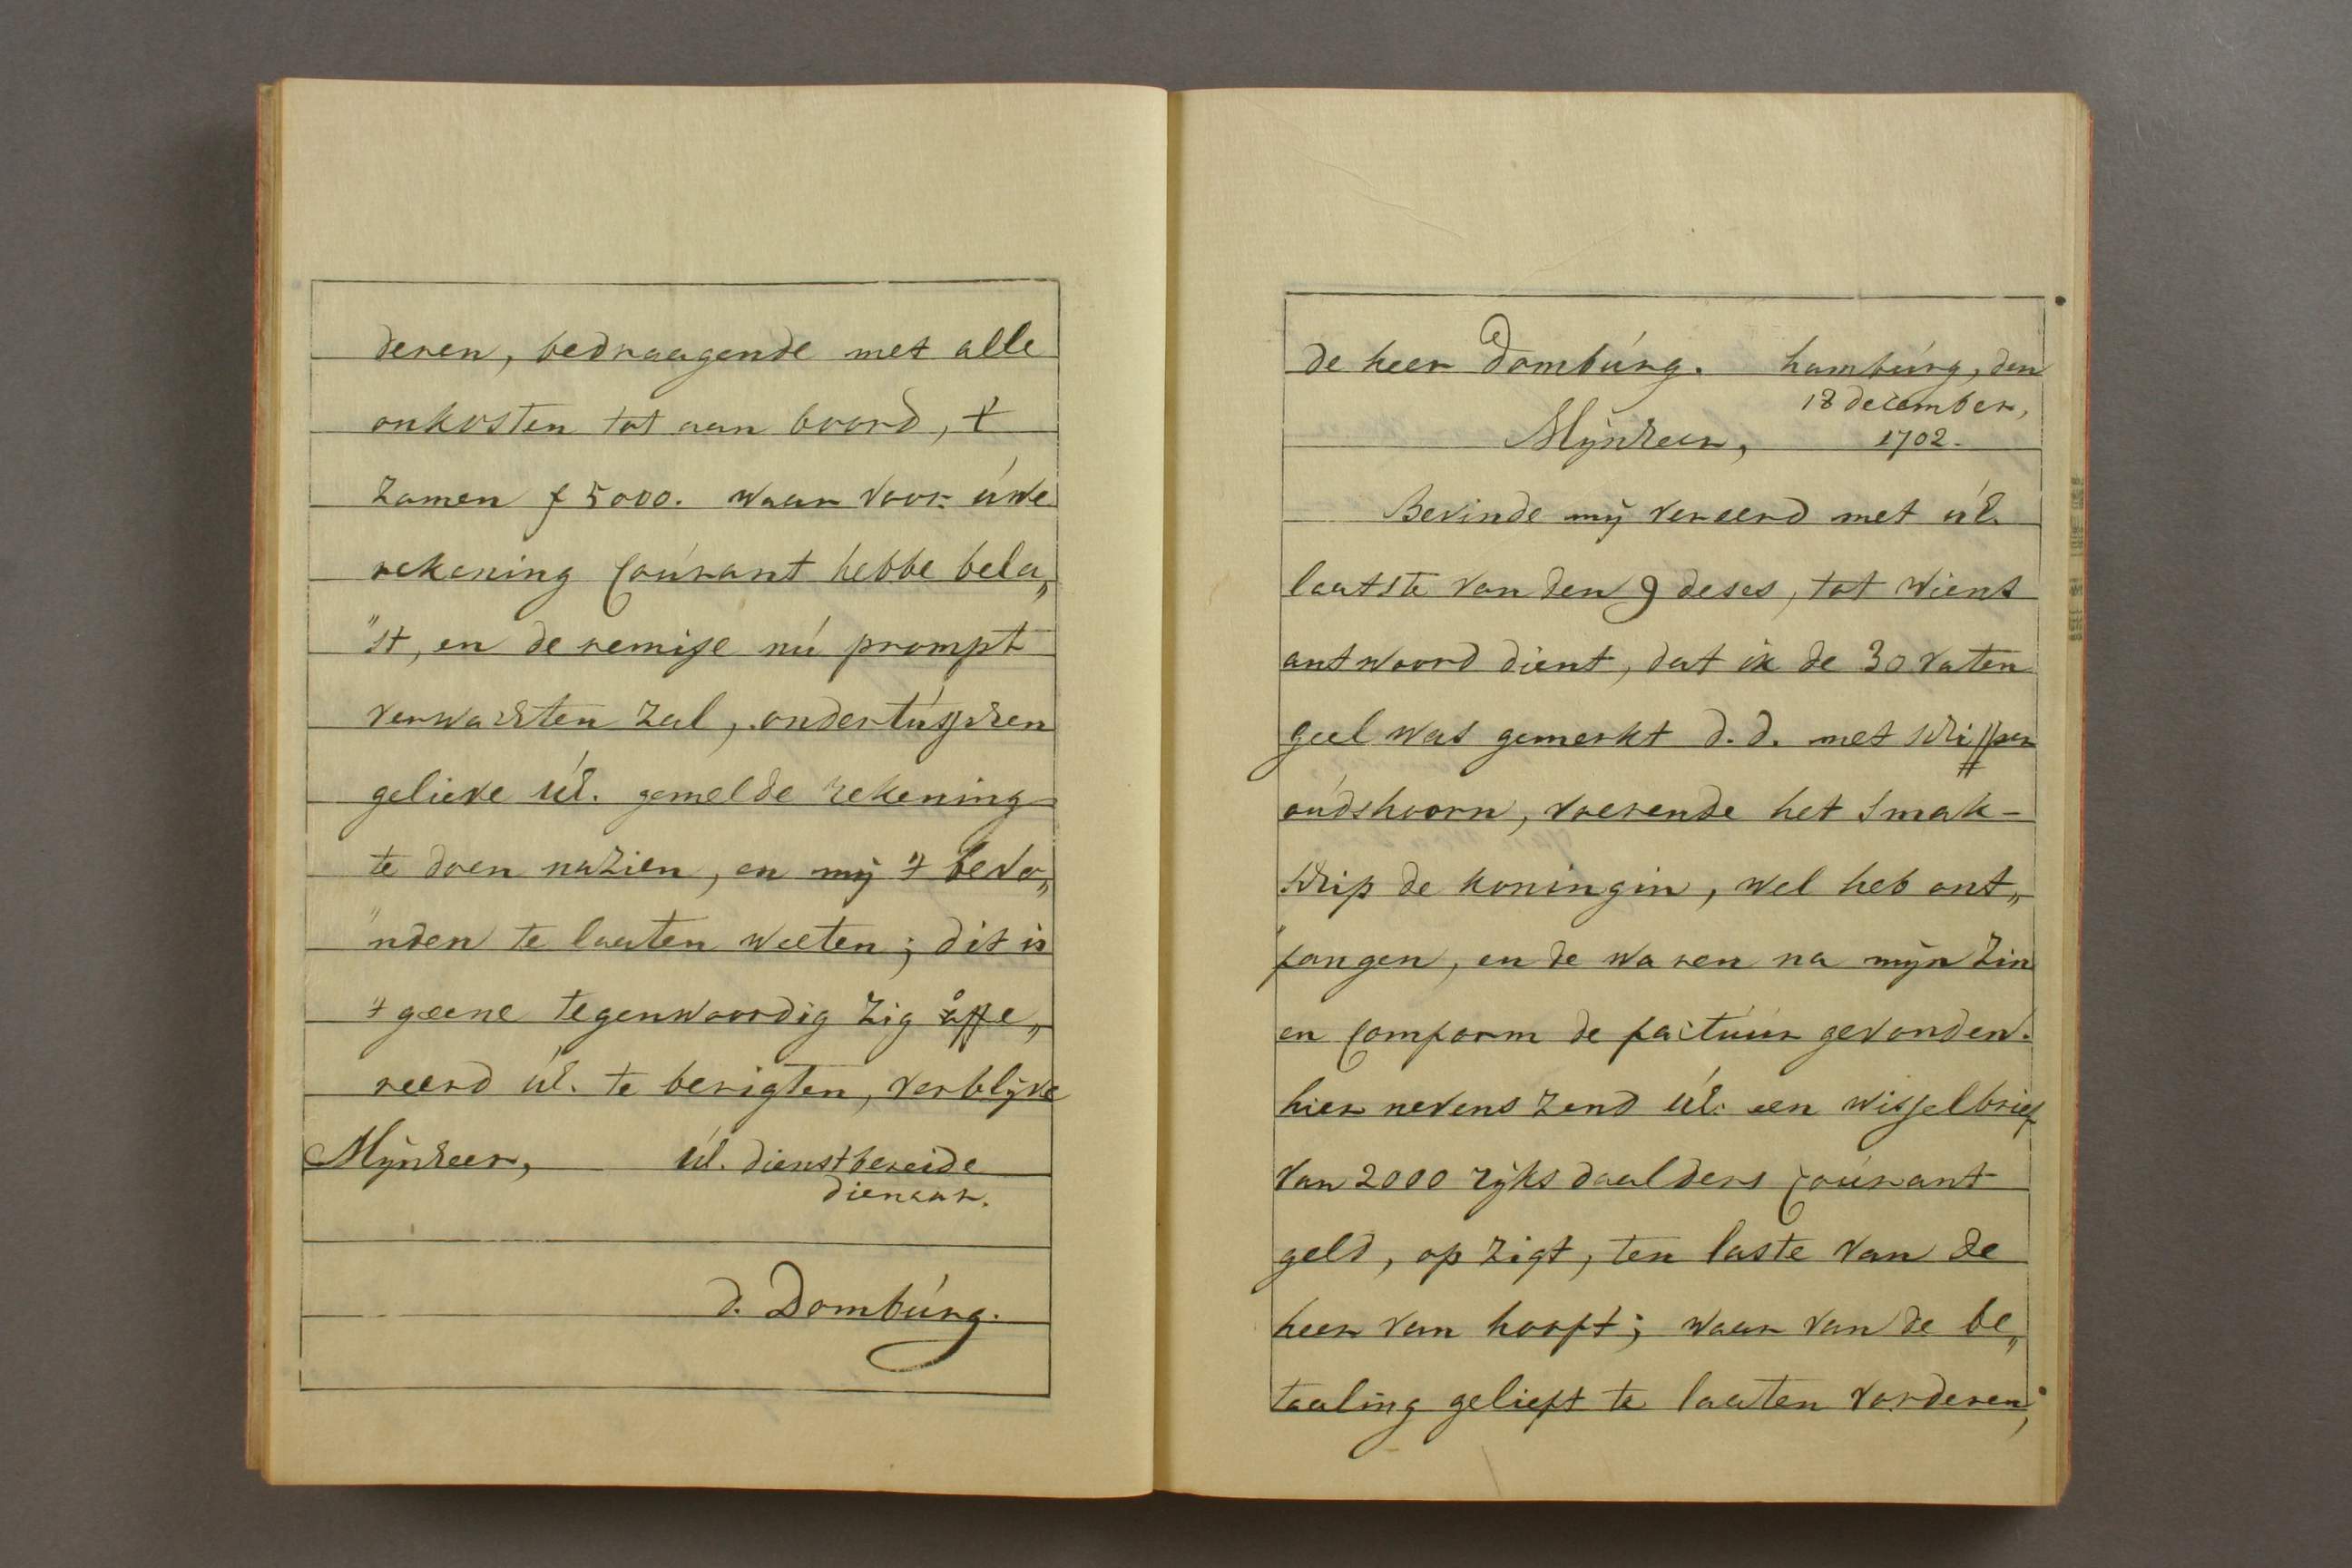 deren, bedraagende met alle
onkosten tot aan boord, t'
zamen f 5000. waar voor uwe
rekening Courant hebbe bela„
„st, en de remise nú prompt
verwachten zal, ondertússchen
gelieve úE. gemelde rekening
te doen nazien, en mij 't bevo„
„nden te laaten weeten; dit is
't geene tegenwoordig zig offe„
reerd úE. te berigten, verblijve
Mijnheer, úE. dienstbereide
dienaar.
D. Dombúrg.
de heer Dombúrg. hambúrg, den
18 december,
Mijnheer, 1702.
Bevinde mij vereerd met úE.
laatste van den 9 deses, tot wiens
antwoord dient, dat ik de 30 vaten
geel was gemerkt D. D. met schipper
oúdshoorn, voerende het smak-
schip de koningin, wel heb ont„
„fangen, en de waren na mijn zin
en Comform de factúúr gevonden.
hier nevens zend úE. een wisselbrief
van 2000 rijksdaalders Coúrant
geld, op zigt, ten laste van de
heer van hooft; waar van de be„
taaling gelieft te laaten vorderen;